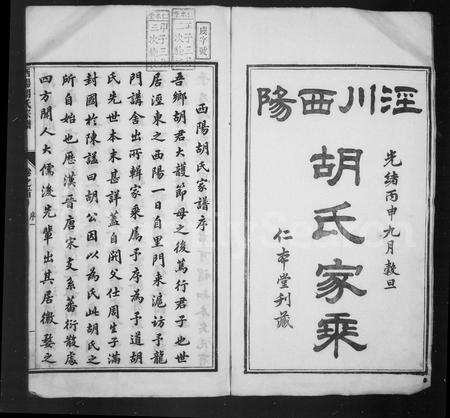 涇川西陽
胡氏家乘
光緒丙申九月穀旦
仁本堂刊藏
西陽胡氏家譜序
吾鄉胡君大護節母之後篤行君子也世
居涇東之西陽一日自里門來滬訪予龍
門講舍出所輯家乘屬予序為予道胡
氏先世本末甚詳蓋自閼父仕周生子滿
封國於陳諡曰胡公因以為氏此胡氏之
所自始也歷漢晉唐宋支系蕃衍散處
四方聞人大儒後先輩出其居徽婺之